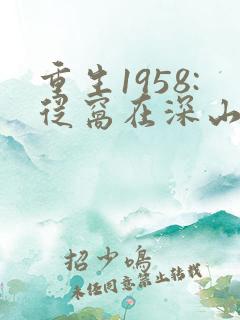 重生1958:
从窝在深山
招少鸣
未经同意禁止转载